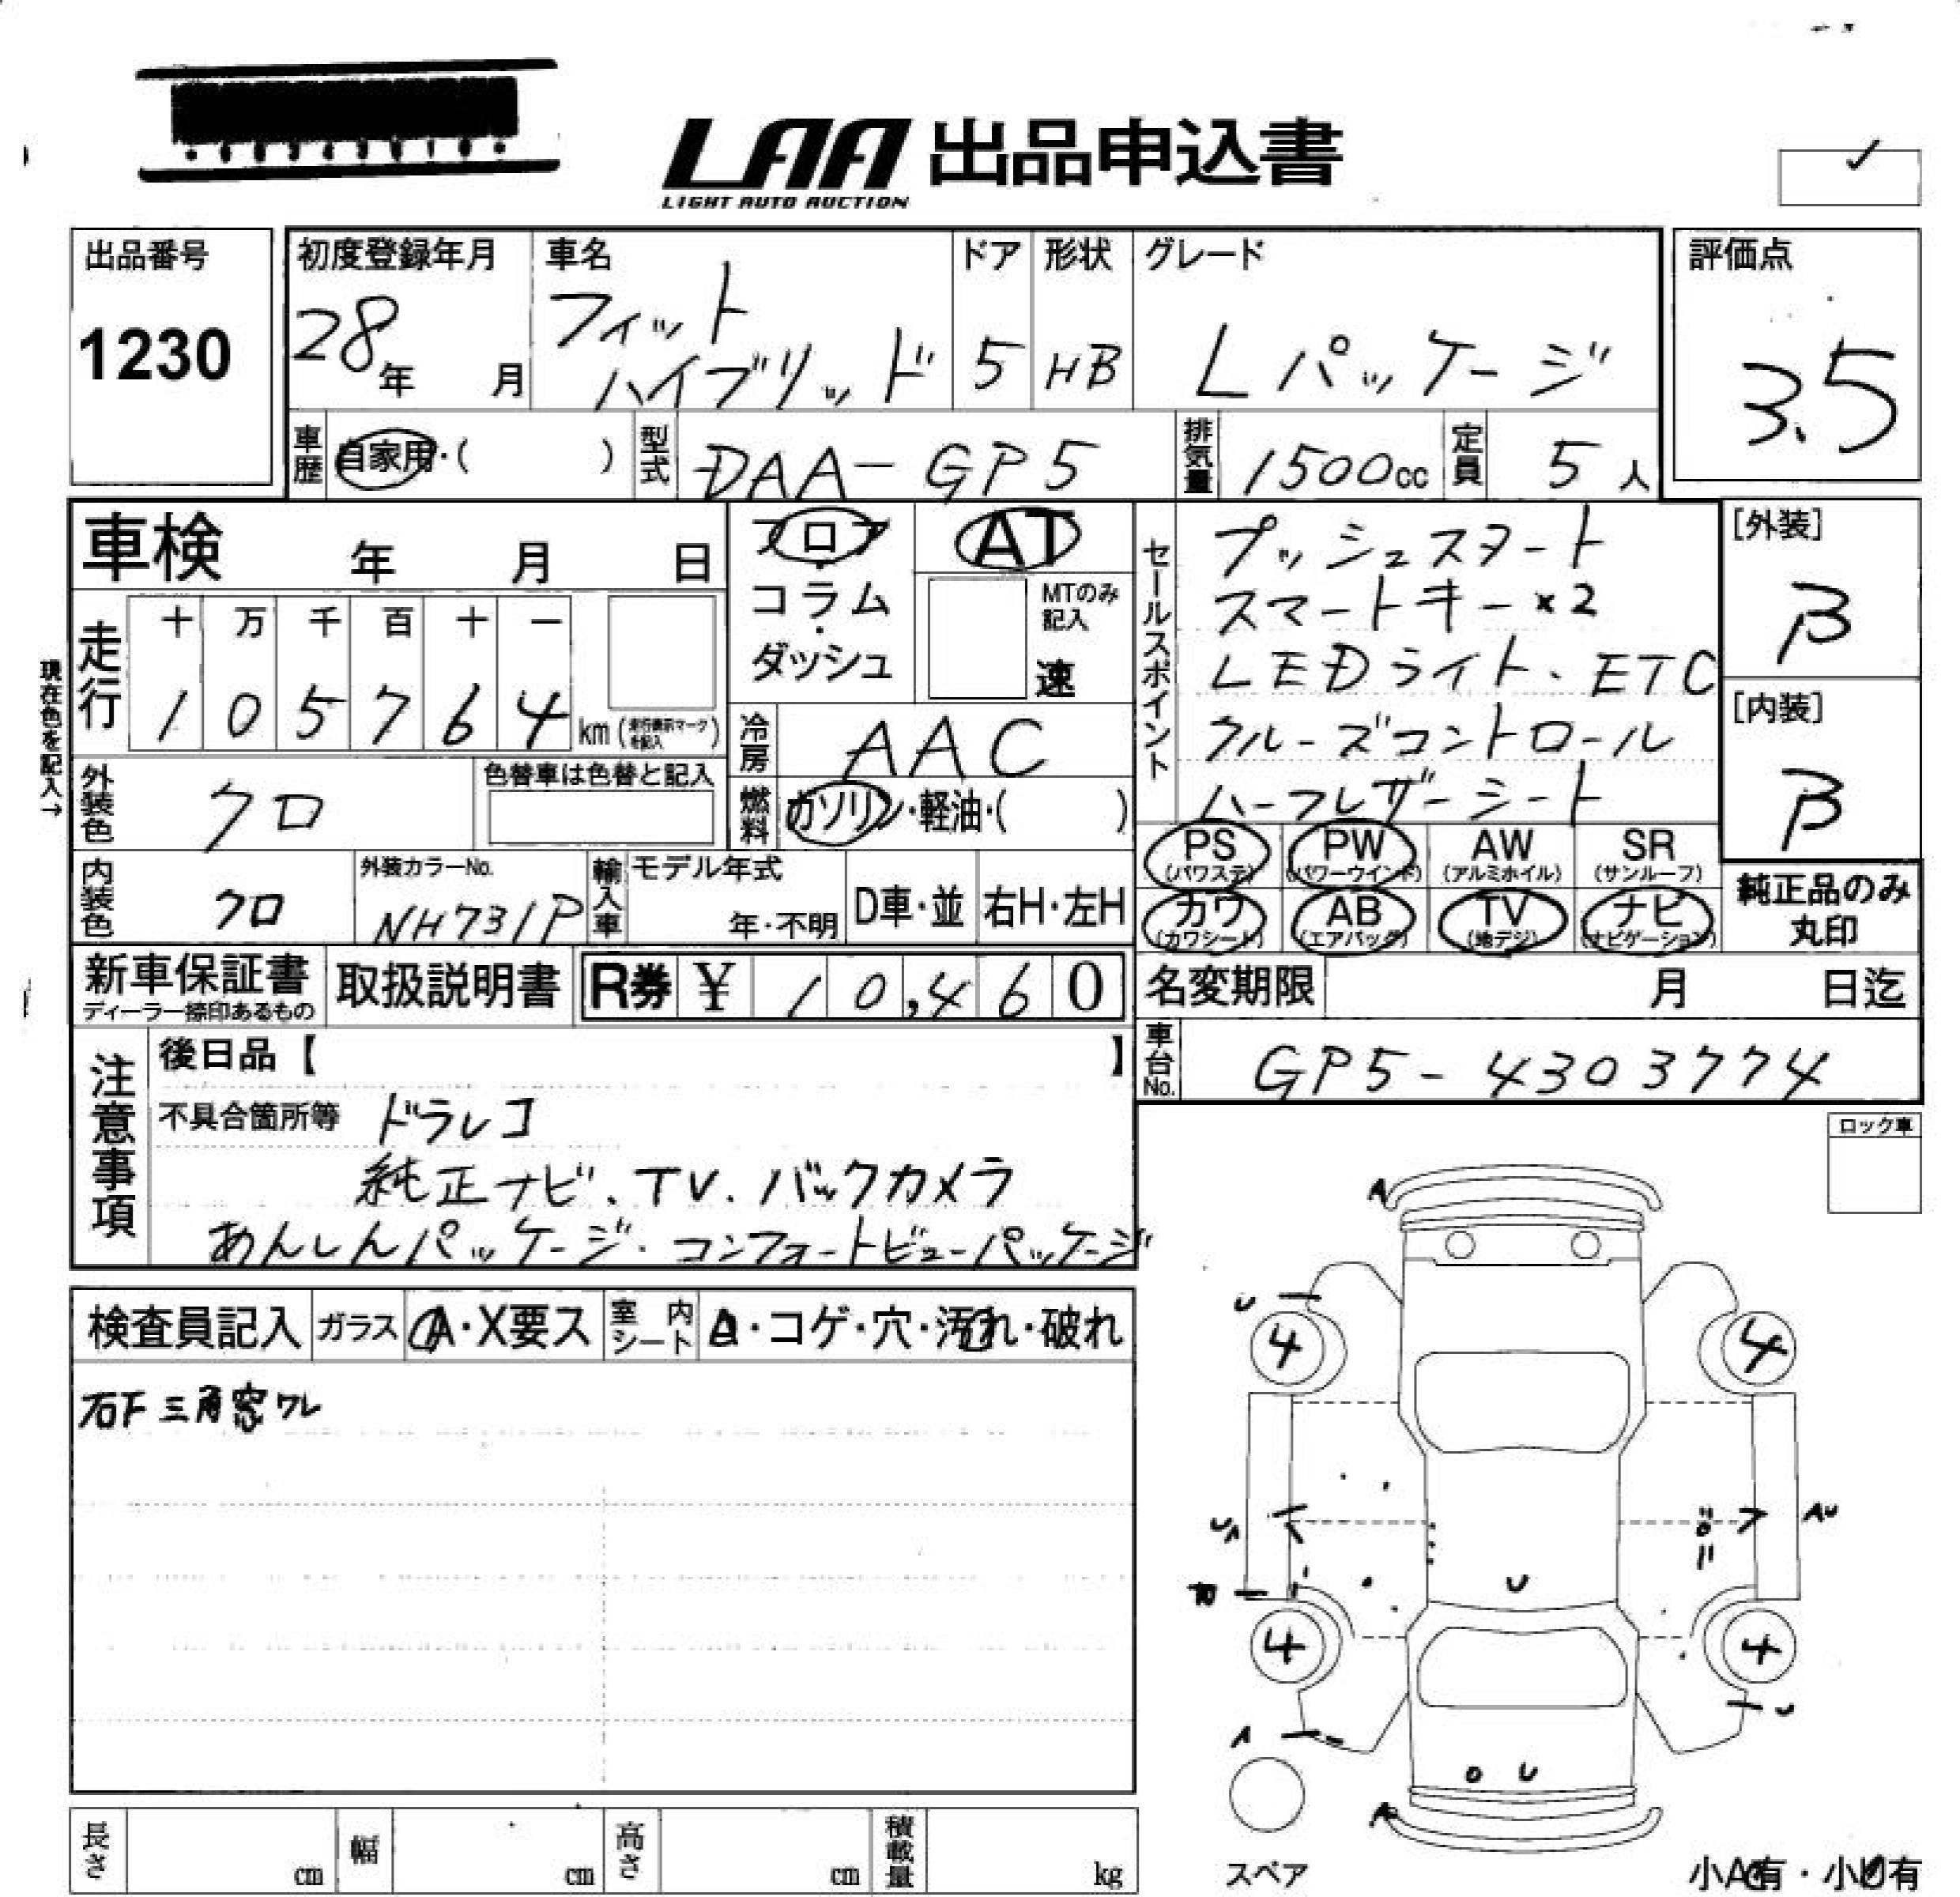 LAA 出品申込書
LIGHT AUTO AUCTION
出品番号
1230
初度登録年月
28年 月
車名
フィット
ハイブリッド
ドア
5
形状
HB
グレード
Lパッケージ
評価点
3.5
車歴 自家用・( )
型式 DAA-GP5
排気量 1500cc
定員 5人
車検 年 月 日
フロア・コラム・ダッシュ
AT
MTのみ記入
速
セールスポイント
プッシュスタート
スマートキー×2
LEDライト、ETC
クルーズコントロール
ハーフレザーシート
[外装]
β
[内装]
β
現在色を記入→
走行
十 万 千 百 十 一
1 0 5 7 6 4
km
冷房 AAC
外装色 クロ
色替車は色替と記入
燃料 ガソリン・軽油・( )
内装色 クロ
外装カラーNo.
NH731P
輸入車
モデル年式
年・不明
D車・並
右H・左H
PS (パワステ)
PW (パワーウインド)
AW (アルミホイル)
SR (サンルーフ)
カワ (カワシート)
AB (エアバッグ)
TV (地デジ)
ナビ (ナビゲーション)
純正品のみ
丸印
新車保証書
ディーラー捺印あるもの
取扱説明書
R券 ¥ 10,460
名変期限 月 日迄
車台No. GP5-4303774
注意事項
後日品【 】
不具合箇所等 ドラレコ
純正ナビ、TV、バックカメラ
あんしんパッケージ・コンフォートビューパッケージ
ロック車
検査員記入
ガラス A・X要ス
室内シート
・コゲ・穴・汚れ・破れ
右F三角窓ワレ
A
U
4
4
UA
AU
U
4
4
A
U
U
A
スペア
長さ cm
幅 cm
高さ cm
積載量 kg
小A有・小U有